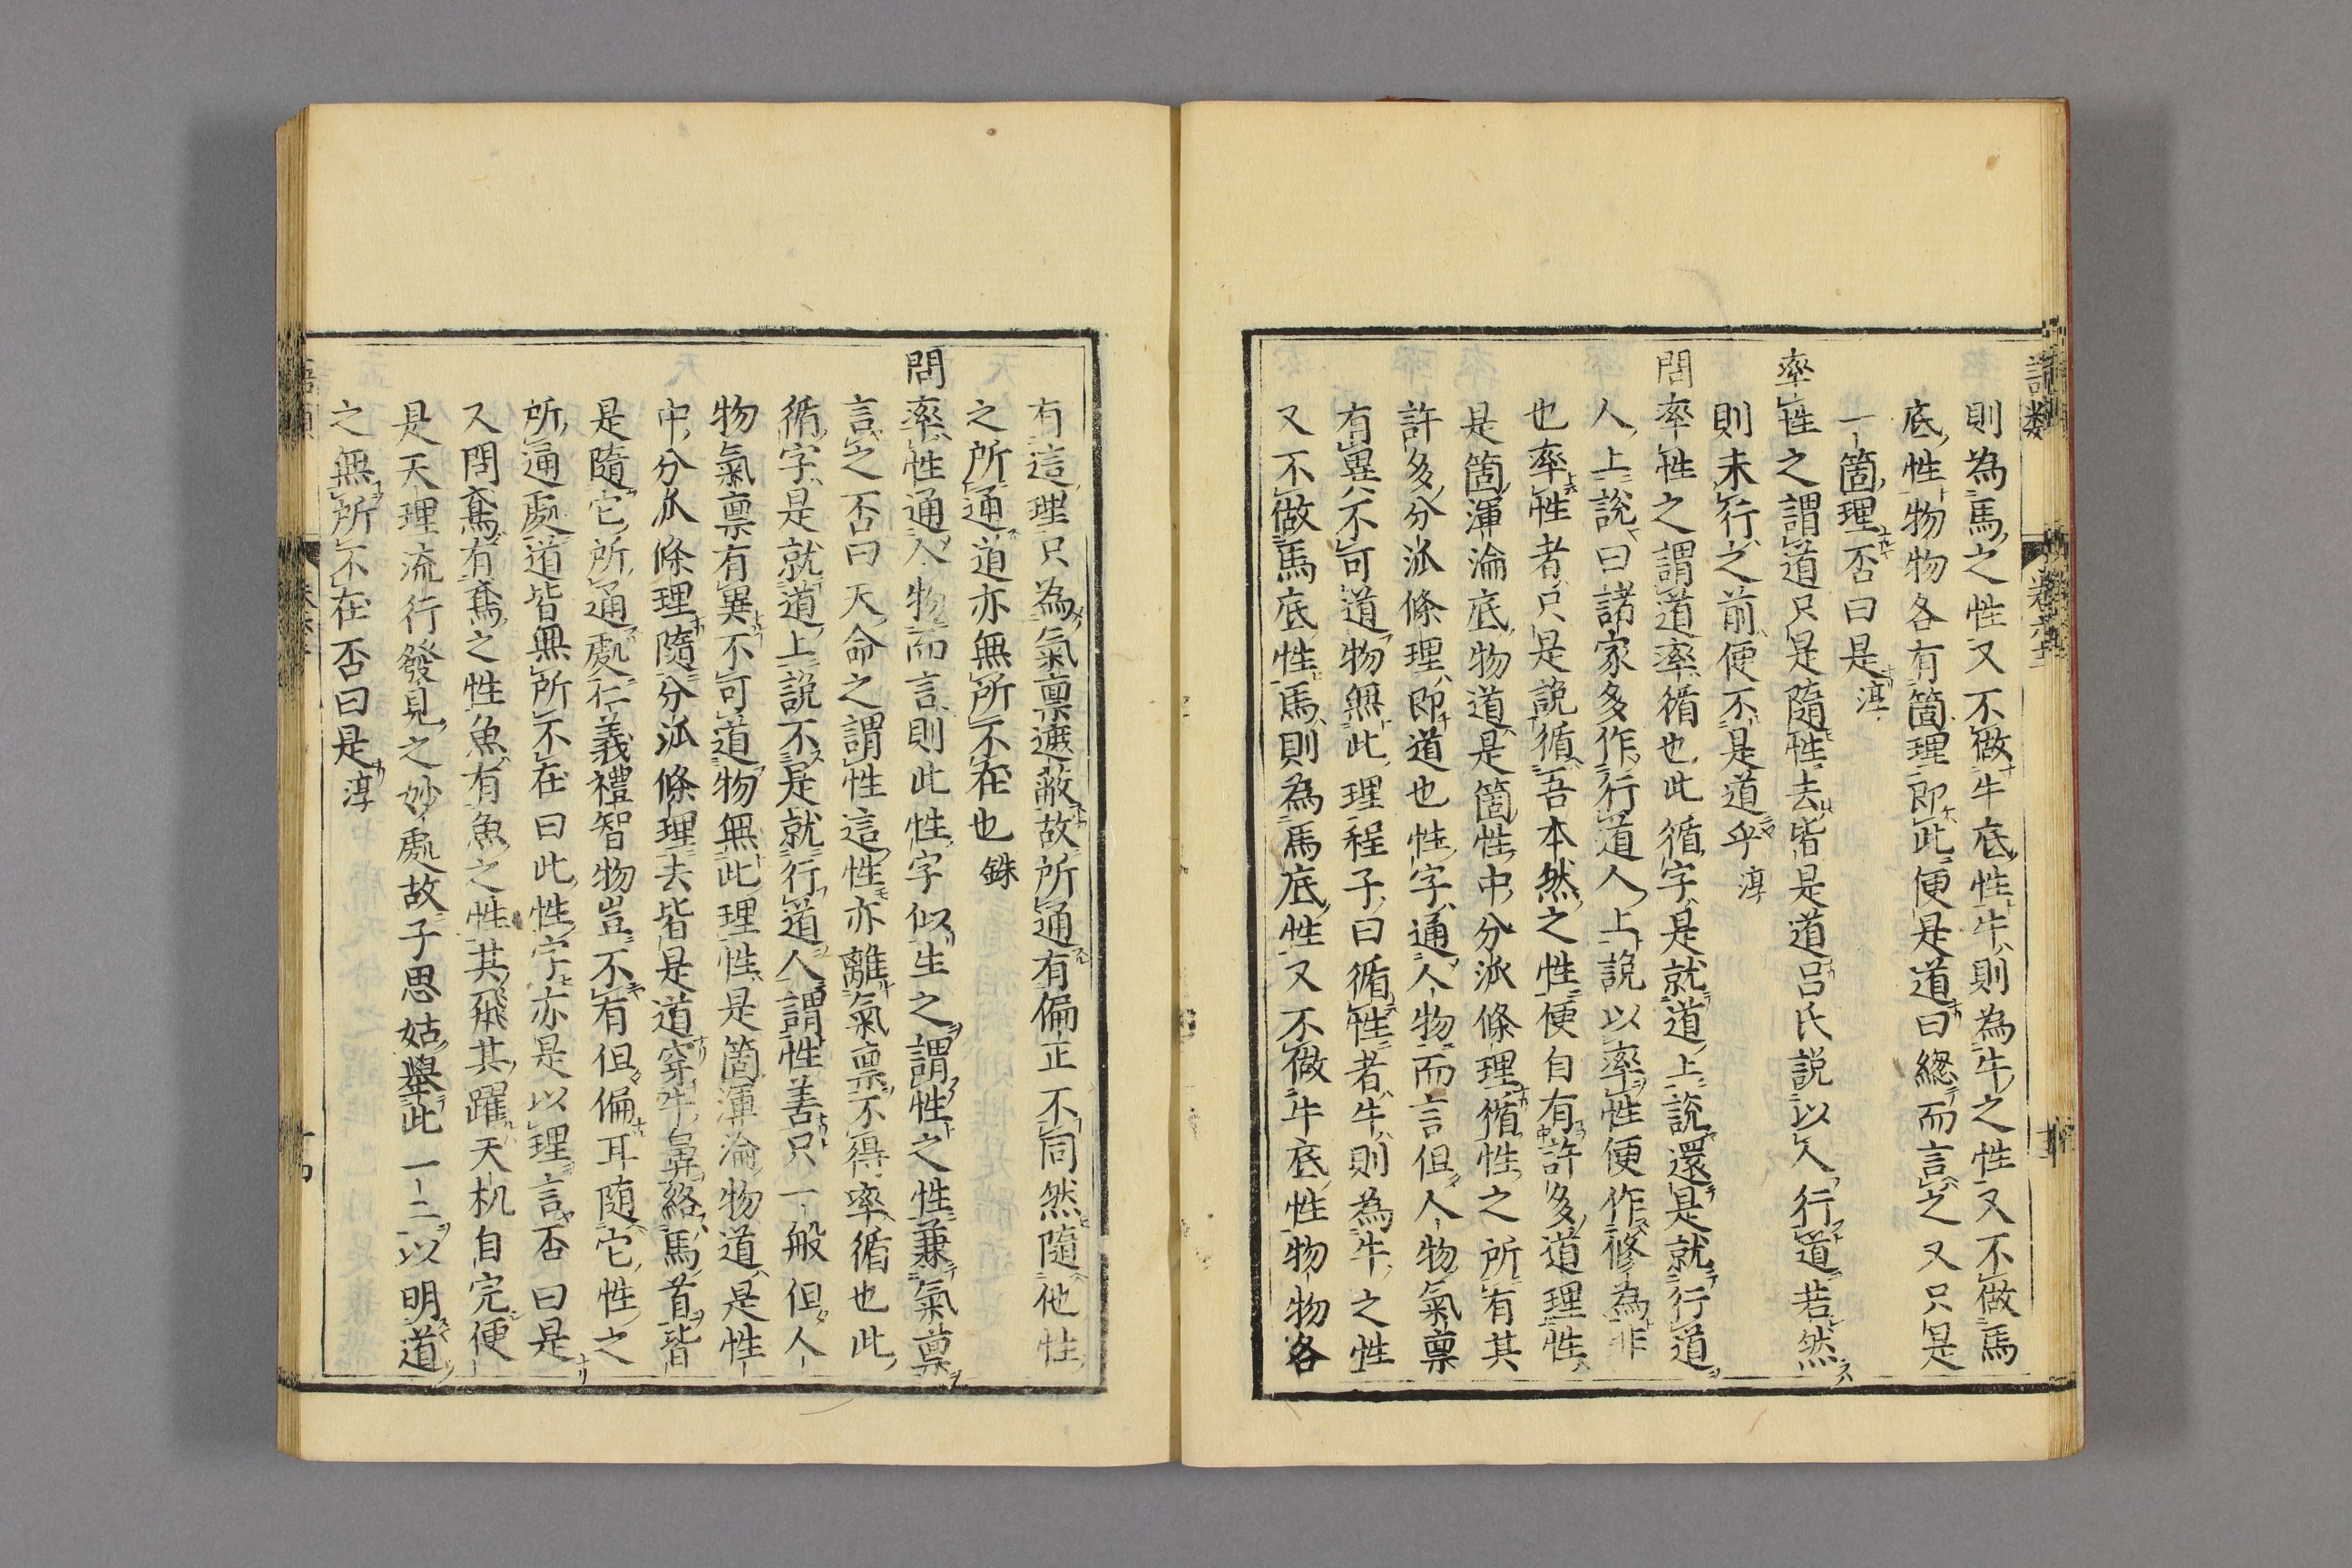 則為馬之性又不做牛底性牛則為牛之性又不做馬
底性物物各有箇理即此便是道曰緫而言之又只是
一箇理否曰是淳
率性之謂道只是隨性去皆是道呂氏說以人行道若然
則未行之前便不是道乎淳
問率性之謂道率循也此循字是就道上說還是就行道
人上說曰諸家多作行道人上說以率性便作修為非
也率性者只是說循吾本然之性便自有許多道理性
是箇渾淪底物道是箇性中分派條理循性之所有其
許多分派條理即道也性字通人物而言但人物氣禀
有異不可道物無此理程子曰循性者牛則為牛之性
又不做馬底性馬則為馬底性又不做牛底性物物各
有這理只為氣禀遮蔽故所通有偏正不同然隨他性
之所通道亦無所不在也銖
問率性通人物而言則此性字似生之謂性之性兼氣禀
言之否曰天命之謂性這性亦離氣禀不得率循也此
循字是就道上說不是就行道人謂性善只一般但人
物氣禀有異不可道物無此理性是箇渾淪物道是性
中分派條理隨分派條理去皆是道穿牛鼻絡馬首皆
是隨它所通處仁義禮智物豈不有但偏耳随它性之
所通處道皆無所不在曰此性字亦是以理言否曰是
又問鳶有鳶之性魚有魚之性其飛其躍天机自完便
是天理流行發見之妙處故子思姑舉此一二以明道
之無所不在否曰是淳